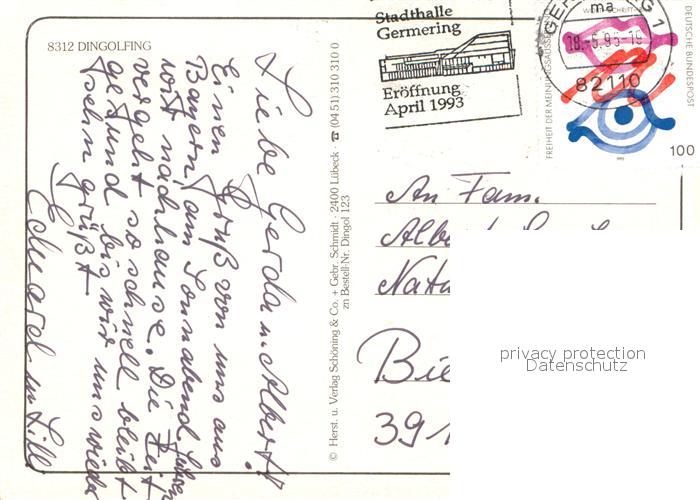 8312 DINGOLFING
Liebe Gerda u. Albert!
Einen Gruß von uns aus
Bayern, am Sonnabend fahren
wir nachhause. Die Zeit
vergeht so schnell bleibt
gesund bis wir uns wieder
sehn grüßt
Eduard u. Lilli
© Herst. u. Verlag Schöning & Co. + Gebr. Schmidt · 2400 Lübeck · ☎ (04 51) 310 310 0
zn Bestell-Nr. Dingol 123
Stadthalle
Germering
Eröffnung
April 1993
GERMERING 1
ma
18.-5.95-19
82110
FREIHEIT DER MEINUNGSÄUSSERUNG
DEUTSCHE BUNDESPOST
100
An Fam.
Bie
391
privacy protection
Datenschutz